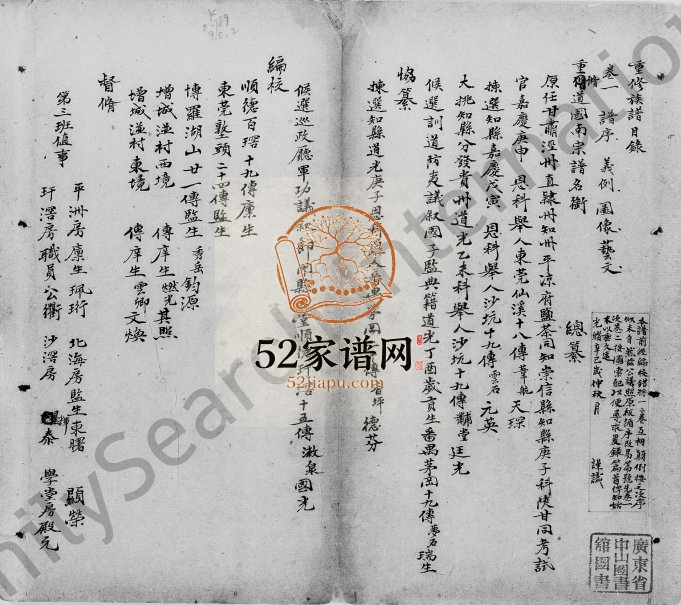 重修族譜目錄
卷一 譜序 義例 圖像 藝文
重修道國南宗譜名銜
總纂
原任甘肅涇州直隸州知州平涼府鹽茶同知崇信縣知縣庚子科陝甘同考試
官嘉慶庚申 恩科舉人東莞仙溪十八傳葦航 天琛
揀選知縣嘉慶戊寅 恩科舉人沙坑十九傳雲石 元英
大挑知縣分發貴州道光乙未科舉人沙坑十九傳黼堂 廷光
候選訓道防夷議敘國子監典籍道光丁酉歲貢生番禺茅岡十九傳夢石 瑞生
協纂
揀選知縣道光庚子恩科舉人番禺茅岡 傳 坪 德芬
候選巡政廳軍功議敘 縣 堂順德 滘十五傳 泉 國光
編校
順德百滘十九傳廩生
東莞墪頭二十四傳監生
博羅湖山廿一傳監生 秀岳 鈞源
增城塘村西境 傳庠生 其照
增城塘村東境 傳庠生 雲卿 文煥
督脩
第三班值事
平洲房廩生珮珩 北海房監生東曙 顯榮
滘房職員公衢 沙滘房 泰 學堂房殿元
光緒辛巳歲仲秋月 謹識
廣東省
中山圖書
館圖書
52家谱网
52jiapu.com
FamilySearch International